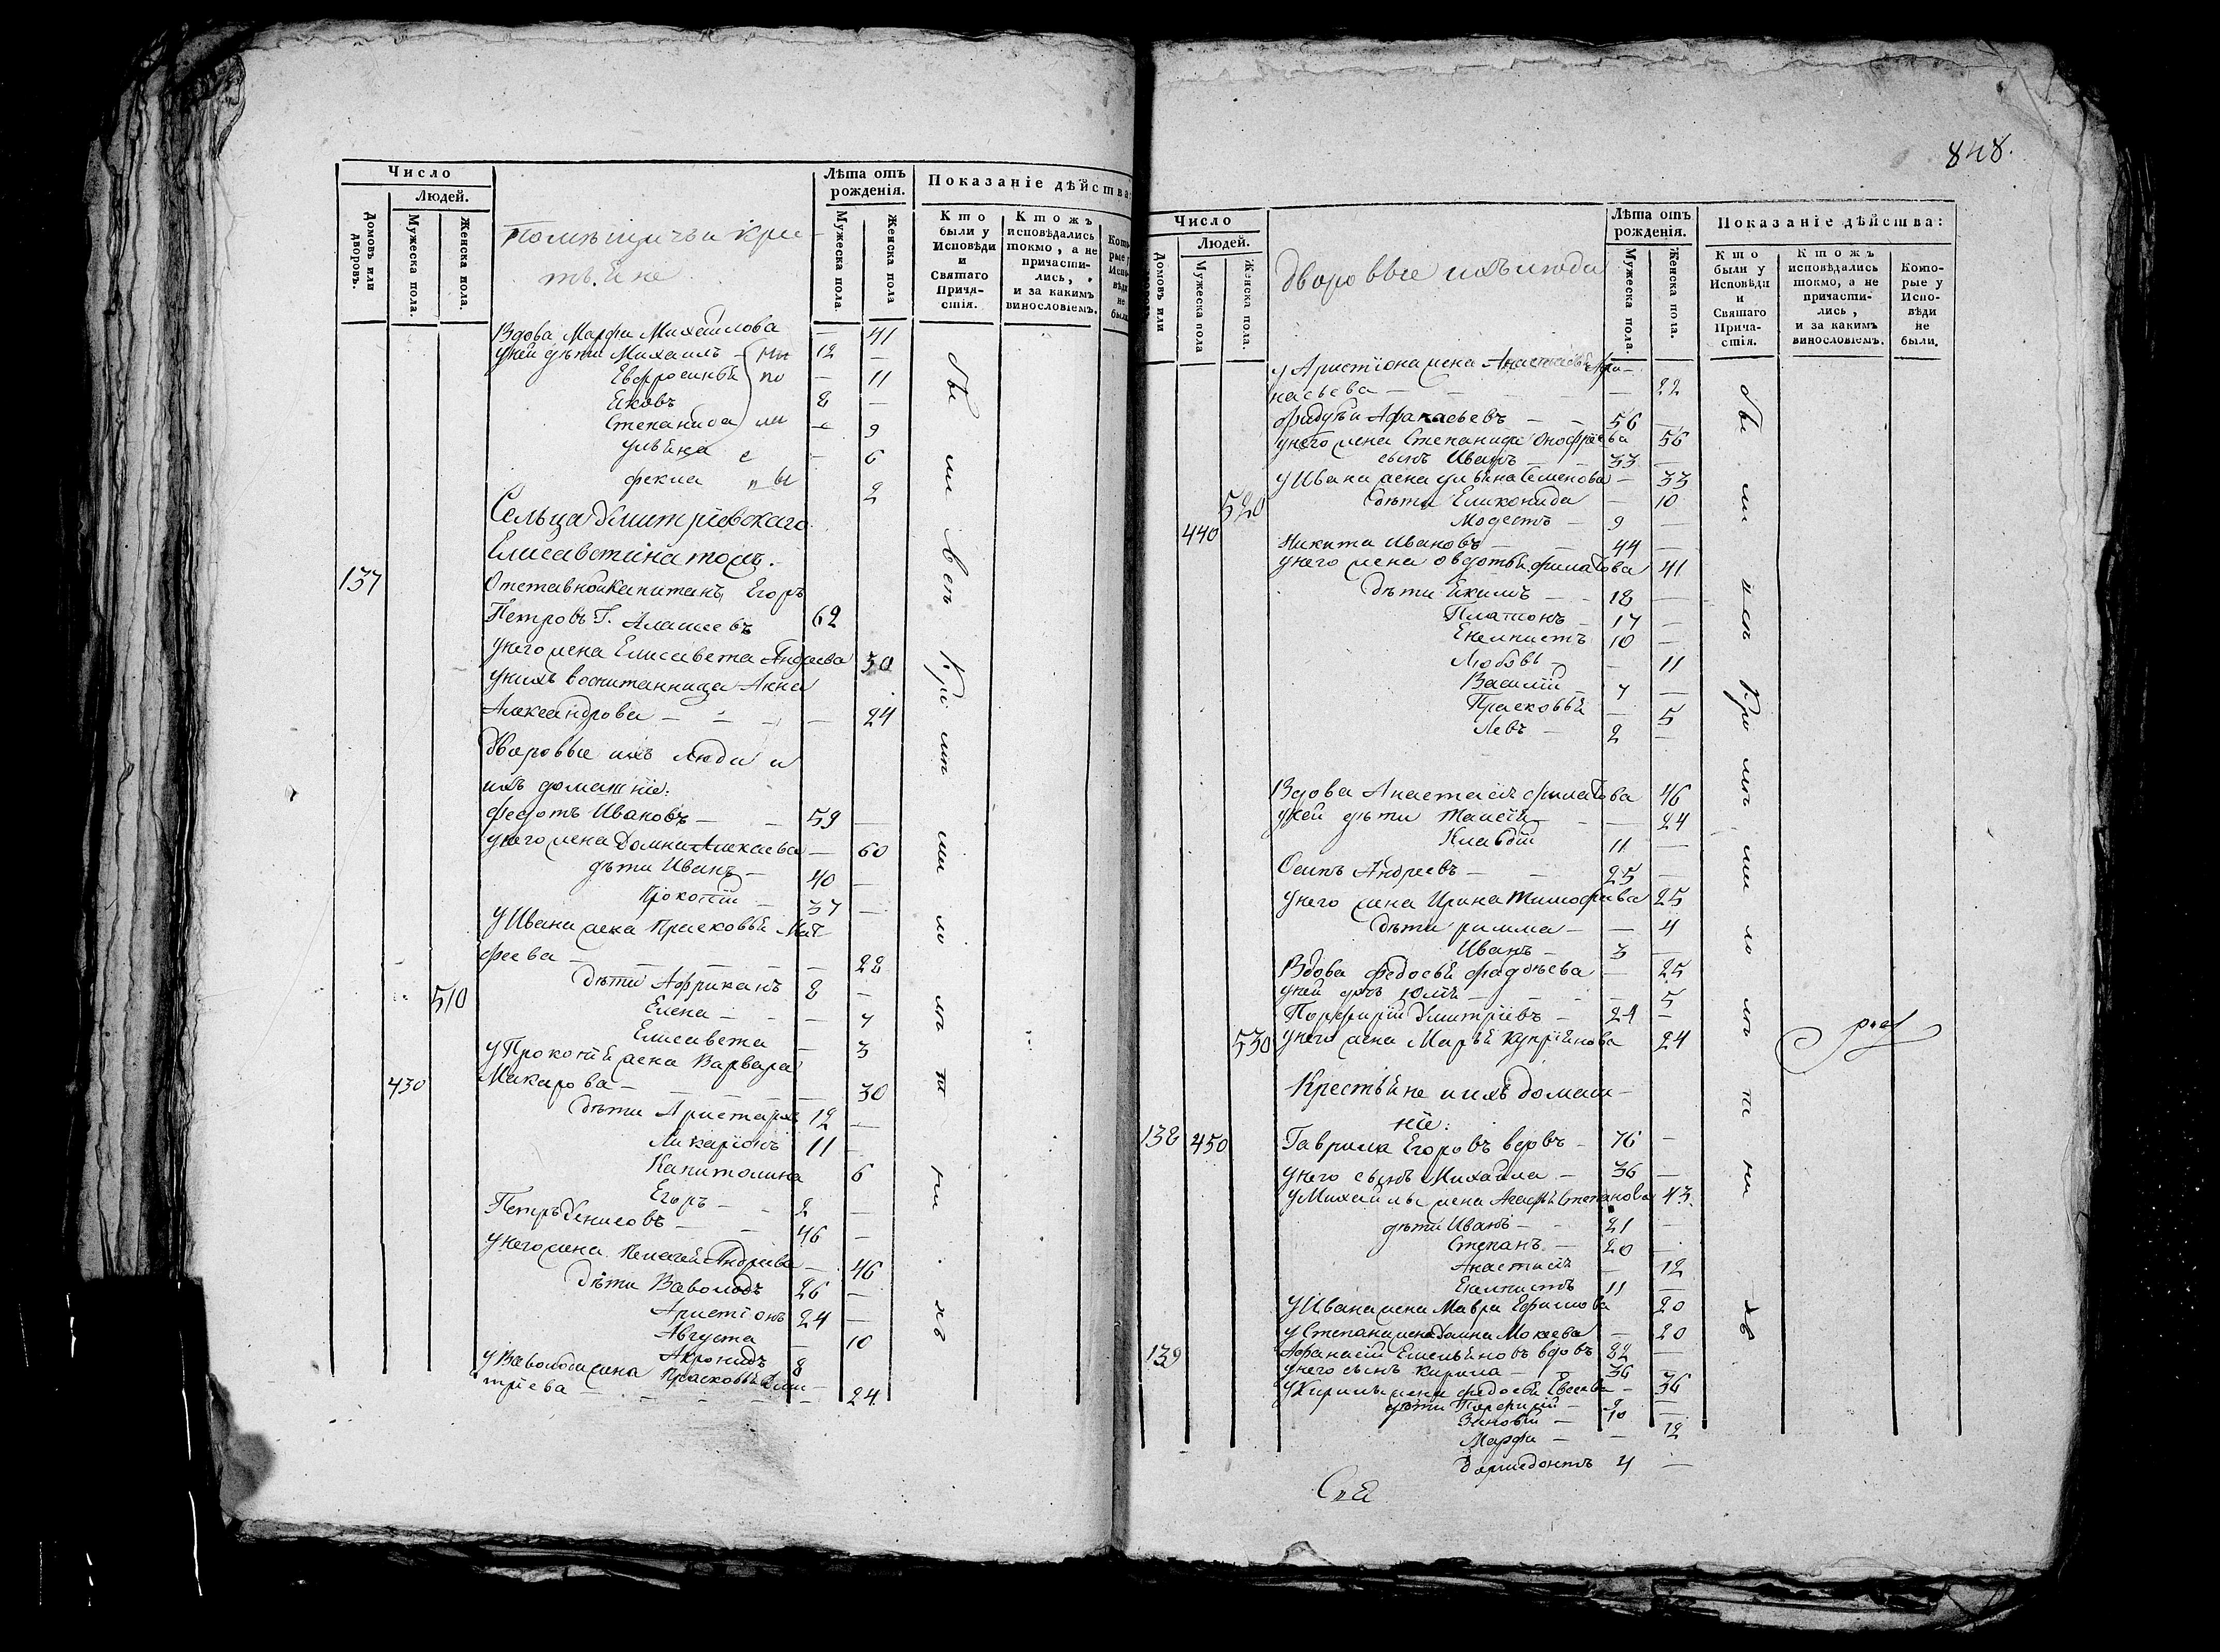 Число
Людей.
Домовъ или дворовъ.
Мужеска пола.
Женска пола.
Помѣщичьи кре-
стьяне
Лѣта отъ рожденія.
Мужеска пола.
Женска пола
Показаніе дѣйства:
Кто были у Исповѣди и Святаго Прича-стія.
Ктожъ исповѣдались токмо, а не причасти-лись, и за какимъ винословіемъ.
Вдова Марфа Михайлова — 41
у ней дѣти Михаилъ 12 —
Евфросинья — 11
Яковъ 8 —
Степанида — 9
Ульяна — 6
Фекла 2
Сельца Дмитріевскаго
Елисаветина тожъ.
137 Отставной Капитанъ Егоръ
Петровъ Г. Алашеевъ 62
у него жена Елисавета Андреева 50
у нихъ воспитанница Анна
Александрова — — — — 24
Дворовые ихъ люди и
ихъ домашніе:
Федотъ Ивановъ — — 59 —
у него жена Домна — 60
дѣти Иванъ — 40 —
Прокопій — 37 —
у Ивана жена Прасковья Мат-
феева — — — — 28
510 дѣти Африканъ 8 —
Елена — — — 7
Елисавета — 3
у Прокопія жена Варвара
430 Макарова — — — — 30
дѣти Аристархъ 12 —
Иларіонъ 11 —
Капитолина 6
Егоръ — 2 —
Петръ Денисовъ — — 46 —
у него жена Пелагея Андреева — 46
дѣти Всеволодъ 26 —
Аристіонъ 24 —
Августа — 10
Акронидъ 8
у Всеволода жена Прасковья Дми-
тріева — — — — — 24.
848.
Число
Людей.
Домовъ или
Мужеска пола
Женска пола.
дворовые ихъ люди
Лѣта отъ рожденія.
Мужеска пола.
Женска пола.
Показаніе дѣйства:
Кто были у Исповѣди и Святаго Прича-стія.
Ктожъ исповѣдались токмо, а не причасти-лись, и за какимъ винословіемъ.
Кото-рые у Испо-вѣди не были.
у Аристіона жена Анастасья Афа-
насьева — — 22
Фаддей Афанасьевъ — — 56 —
у него жена Степанида Онофріева 56
сынъ Иванъ — 33 —
у Ивана жена Ульяна Семенова — 33
520 дѣти Еликонида — 10
Модестъ — 9 —
440 Никита Ивановъ — — 44 —
у него жена Овдотья Филатова 41
дѣти Екимъ — — 18 —
Платонъ — 17 —
Екемпистъ 10 —
Любовь — — 11
Василій — 7 —
Прасковья — 5
Левъ — 2 —
Вдова Анастасія Филатова 46
у ней дѣти Таисія — — 24
Клавдій 11 —
Осипъ Андреевъ — — 25 —
у него жена Ирина Тимофеева 25
дѣти Римма — — 4
Иванъ — 3 —
Вдова Федосья Фадѣева — 25
у ней дочь Юлія — — — 5
Порфирій Дмитріевъ — 24 —
530 у него жена Марья Купріянова 24
Крестьяне и ихъ домаш-
ніе:
138 450 Гаврила Егоровъ вдовъ — 76 —
у него сынъ Михайла — 36 —
у Михайлы жена Агафья Степанова 43.
дѣти Иванъ — — 21 —
Степанъ — 20 —
Анастасія — 12
Екемпистъ 11 —
у Ивана жена Мавра Ефимова 20
у Степана жена Домна Мокеева — 20
139 Афанасій Емельяновъ вдовъ 82 —
у него сынъ Кирила — 36 —
у Кирилы жена Федосья Евсеева — 36
дѣти Порфирій —
Зиновій — 10 —
Марфа — — 12
Дормедонтъ 4 —